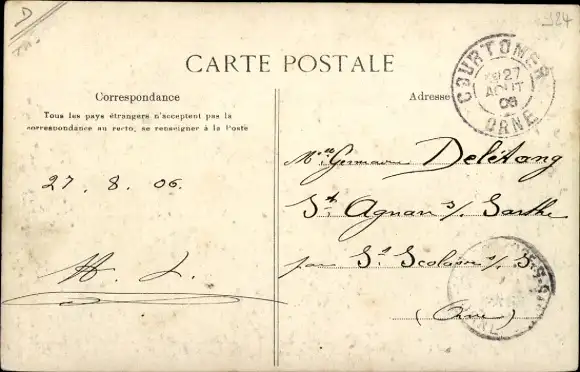 D
324
CARTE POSTALE
Correspondance
Tous les pays étrangers n'acceptent pas la
correspondance au recto, se renseigner à la Poste
27. 8. 06.
H. L.
Adresse
COURTOMER
27
AOUT
06
ORNE
Germaine Delétang
St Agnan s/ Sarthe
par Ste Scolasse s/ S.
(Orne)